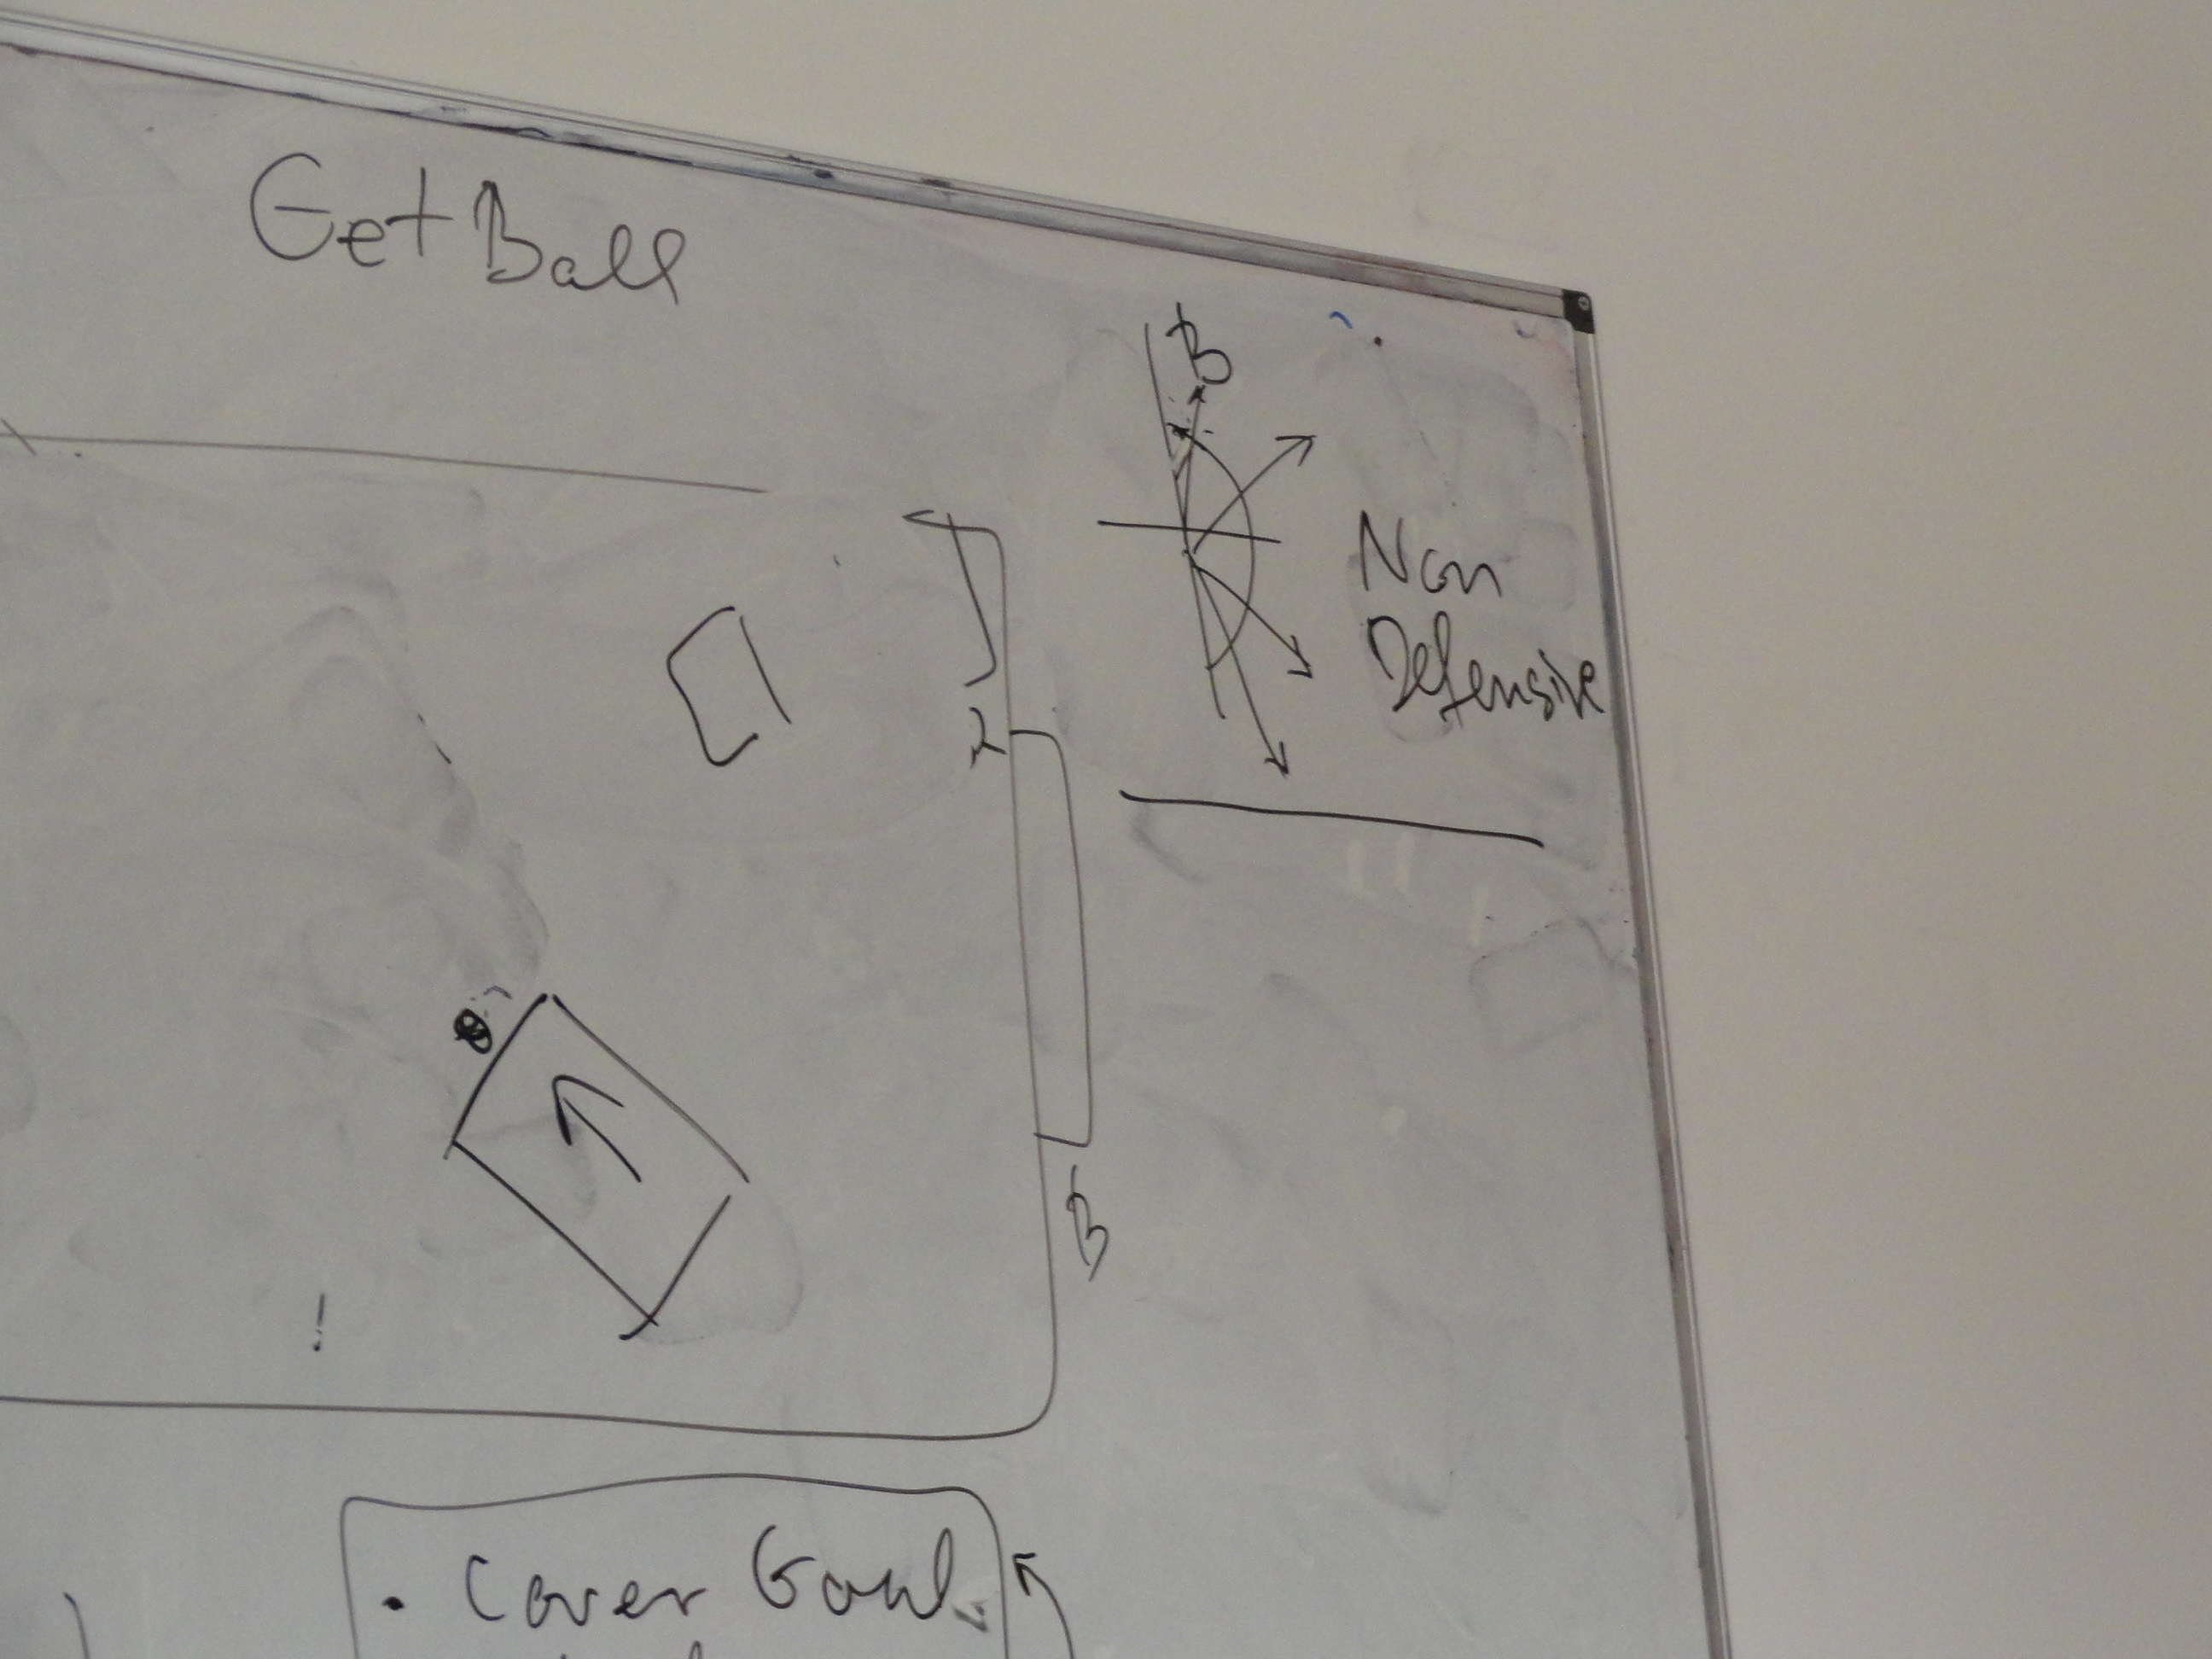 Get Ball
B
Non
Defensive
B
! 
• Cover Goal